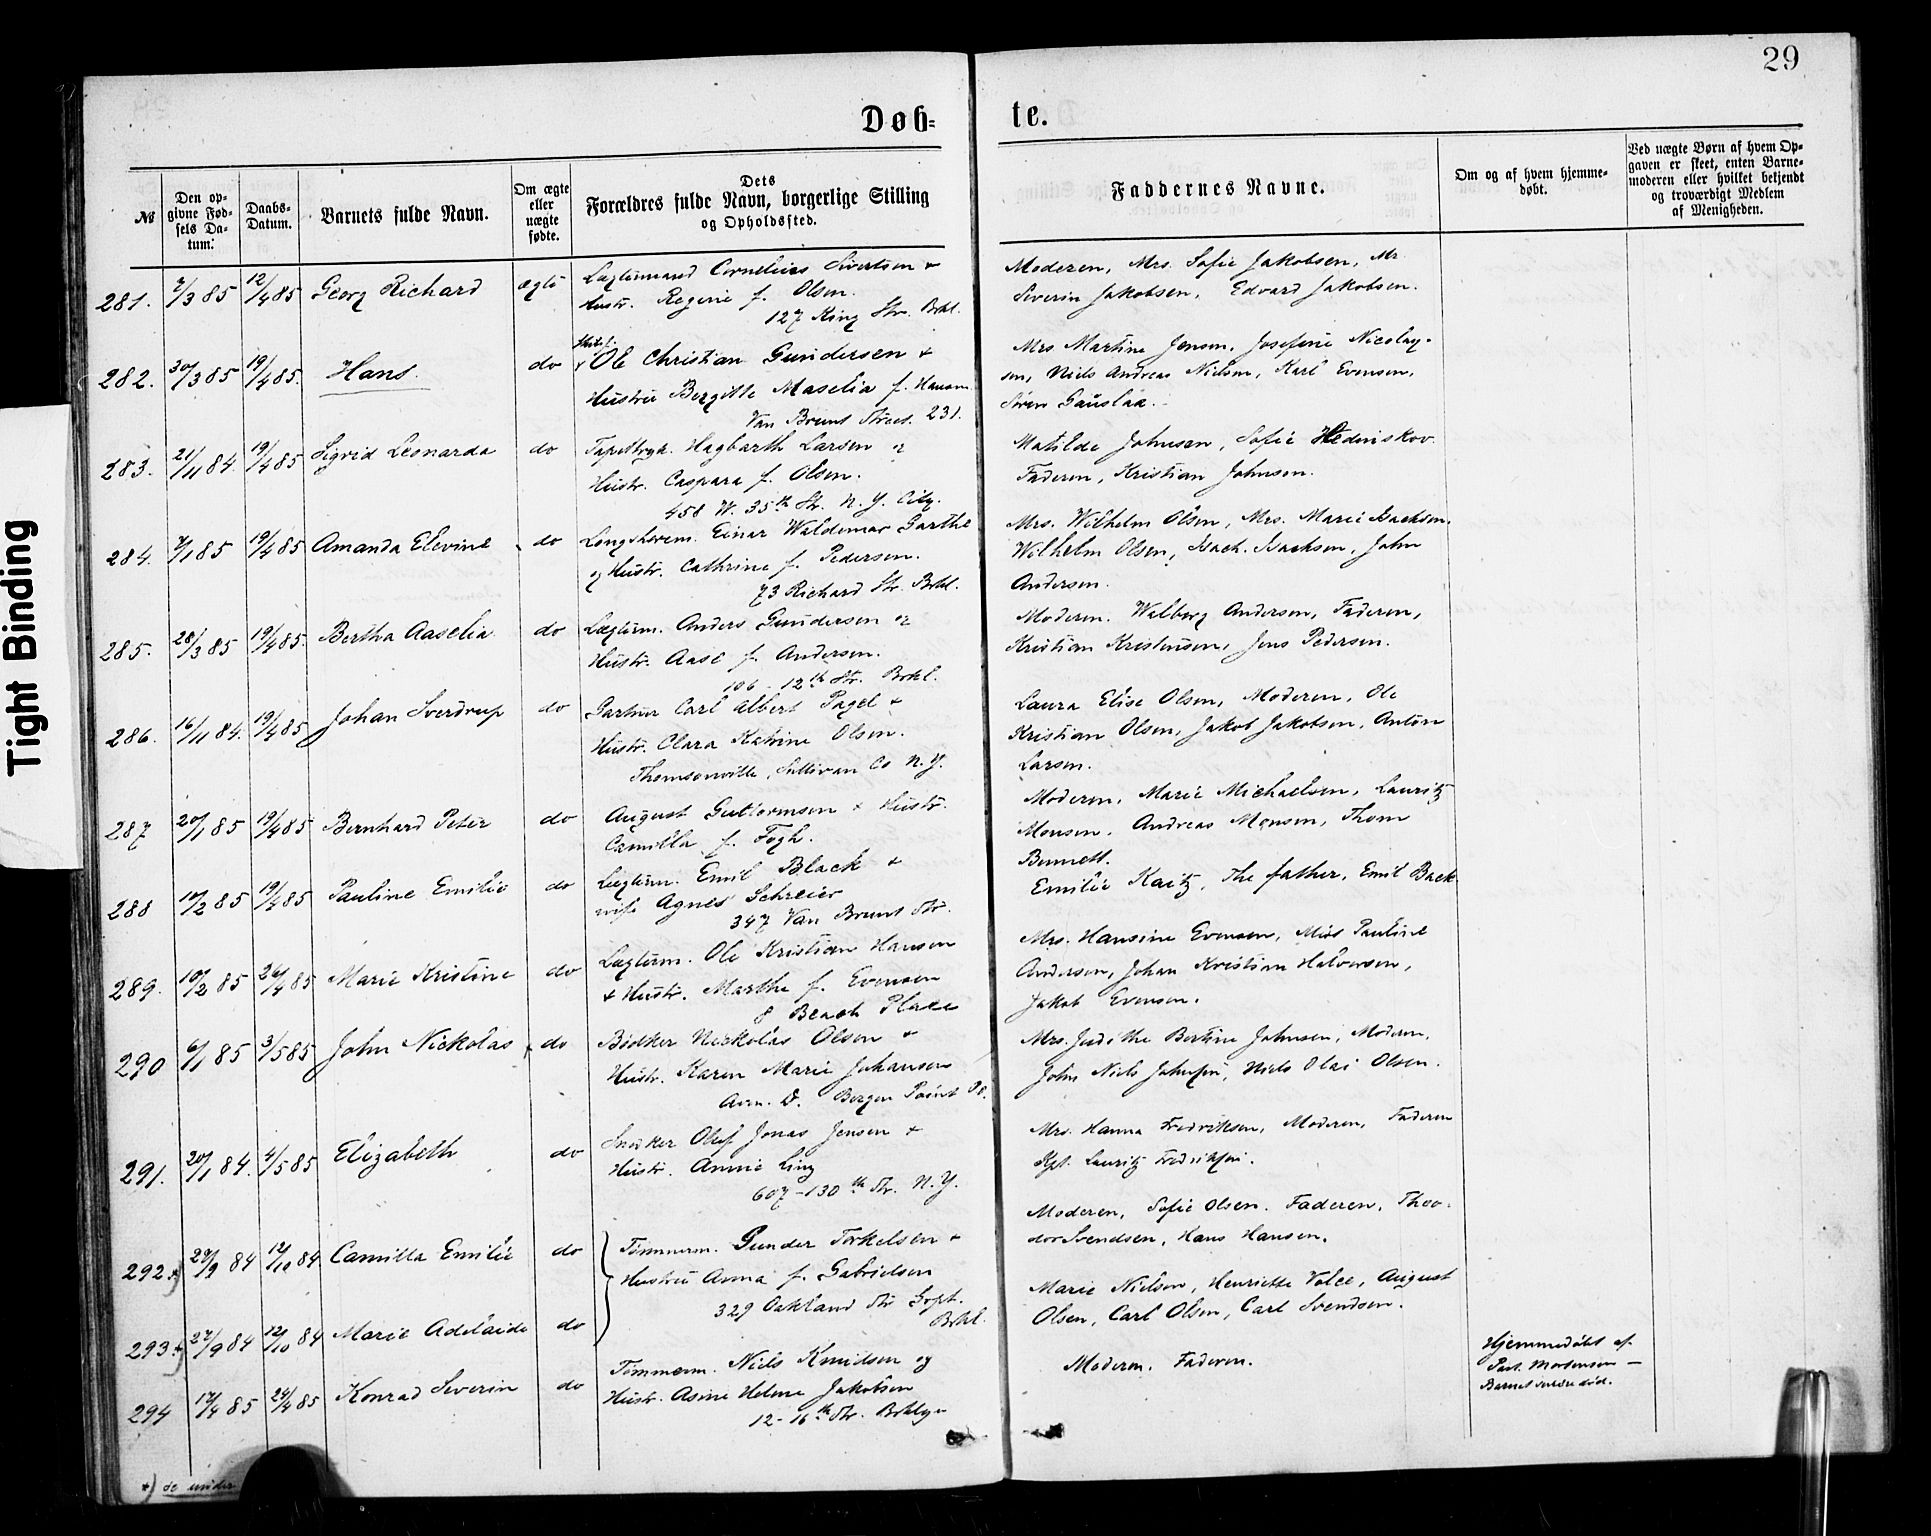 29
Døb=
te.
№
Den op-
givne Fød-
sels Da-
tum.
Daabs-
Datum.
Barnets fulde Navn.
Om ægte
eller
uægte
fødte.
Dets
Forældres fulde Navn, borgerlige Stilling
og Opholdssted.
Faddernes Navne.
Om og af hvem hjemme-
døbt.
Ved uægte Børn af hvem Op-
gaven er skeet, enten Barne-
moderen eller hvilket bekjendt
og troværdigt Medlem
af Menigheden.
281. 7/3 85 12/4 85 Georg Richard ægte
Cornelius Sivertsen +
Hustr. Regine f. Olsen.
127 King Str. Bokl.
Moderen, Mrs. Sofie Jakobsen, Mr.
Severin Jakobsen, Edvard Jakobsen.
282. 30/3 85 19/4 85. Hans. do
Ole Christian Gundersen +
Hustru Bergitte Maselia f. Hansen
Van Brunt Street. 231.
Mrs Martine Jensen, Josefine Nicolay-
sen, Niels Andreas Nielsen, Karl Evensen,
Søren Gauslaa.
283. 21/11 84. 19/4 85 Sigrid Leonarda do
Hagbarth Larsen og
Hustr. Caspara f. Olsen.
458 W. 35th Str. N.Y. City.
Matilde Johnsen, Sofie
Faderen, Kristian Johnsen.
284. 7/1 85 19/4 85 Amanda Elevine do
Einar Waldemar Garthe
og Hustr. Cathrine f. Pedersen.
73 Richard Str. Bokl.
Mrs. Wilhelm Olsen, Mrs. Marie Isachsen.
Wilhelm Olsen, Isach. Isachsen, John
Andersen.
285. 28/3 85 19/4 85. Bertha Aaselia do
Lægterm. Anders Gundersen og
Hustr. Aase f. Andersen.
106 - 12th Str. Bokl.
Moderen. Walborg Andersen, Faderen,
Kristian Kristensen, Jens Pedersen.
286. 16/11 84. 19/4 85 Johan Sverdrup do
Gartner Carl Albert Pagel +
Hustr. Clara Katrine Olsen.
Thomsonville, Sullivan Co N.Y.
Laura Elise Olsen, Moderen, Ole
Kristian Olsen, Jakob Jakobsen, Anton
Larsen.
287 20/1 85 19/4 85 Bernhard Peter do
August Guttormsen + Hustr.
Camilla f. Fogh.
Moderen, Marie Michaelsen, Lauritz
Monsen. Andreas Monsen, Thom
Bennett.
288 10/2 85 19/4 85 Pauline Emilie do
Lægterm. Emil Black +
wife Agnes Schreier
347 Van Brunt Str.
Emilie Kaitz, The father, Emil Back
289. 10/2 85 26/4 85 Marie Kristine do
Lægterm. Ole Kristian Hansen
+ Hustr. Marthe f. Evensen
8 Beach Place
Mrs. Hansine Evensen, Miss Pauline
Andersen, Johan Kristian Halvorsen,
Jakob Evensen.
290 6/1 85 3/5 85 John Nickolas do
Bødker Nickolas Olsen +
Hustr. Karen Marie Johansen
Aven. D. Bergen Point
Mrs. Judithe Bertine Johnsen, Moderen,
John Niels Johnsen, Niels Olai Olsen.
291. 20/1 84. 4/5 85 Elizabeth do
Snedker Oluf Jonas Jensen +
Hustr. Annie Ling
607-130th Str. N.Y.
Mrs. Hanna Fredriksen, Moderen, Faderen
Kpt. Lauritz Fredriksen.
292 *) 29/9 84 12/10 84 Camilla Emilie do
Tømmerm. Gunder Torkelsen +
Hustru Anna f. Gabrielsen
329 Oakland Str Grpt.
Bokl.
Moderen, Sofie Olsen. Faderen, Theo-
dor Svendsen, Hans Hansen.
293 *) 27/9 84 12/10 84 Marie Adelaide do
Marie Nielsen, Henriette Volce, August
Olsen, Carl Olsen, Carl Svendsen.
294 17/4 85 24/4 85 Konrad Severin do
Tømmerm. Niels Knudsen og
Hustr. Asine Helene Jakobsen
12-16th Str. Boklyn
Moderen. Faderen.
Hjemmedøbt af
Past. Mortensen —
Barnet senere død.
*) se under
Tight Binding